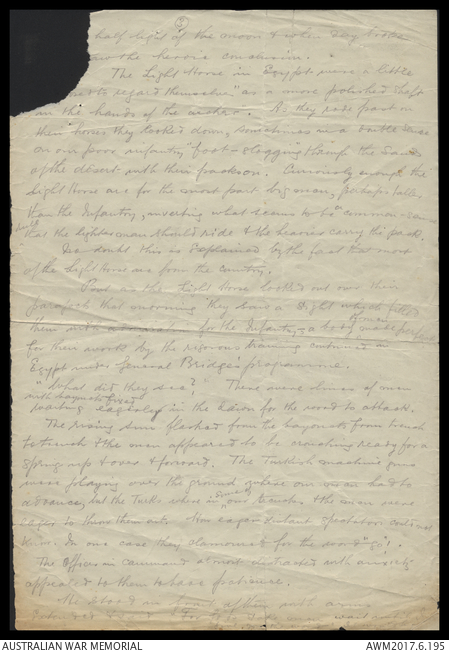 (3)
half light of the moon & when day broke
the heroic conclusion.
The Light Horse in Egypt were a little
to regard themselves as a more polished shaft
in the hands of the archer. As they rode past on
their horses they looked down, sometimes in a
on our poor infantry "foot-slogging" through the sands
of the desert with their packs on. Curiously enough the
Light Horse are for the most part big men, perhaps taller
than the Infantry, inverting what seems to be common-sense
that the lighter man should ride & the heavier carry the pack.
No doubt this is explained by the fact that most
of the Light Horse are from the country.
But as the Light Horse looked out over their
parapets that morning they had a sight which filled
them with admiration for the Infantry, a body made perfect
for their work by the rigorous training continued in
Egypt under General Bridges' programme.
"What did they see?" There were lines of men
with bayonets fixed
waiting eagerly in the for the word to attack.
The rising sun flashed from the bayonets from trench
to trench & the men appeared to be crouching ready for a
spring up & over & forward. The Turkish machine guns
were playing over the ground where our men had to
advance, but the Turks were in some of our trenches & the men were
eager to throw them out. How eager distant spectators could not
know. In one case they clamoured for the word "go".
The Officer in command almost distracted with anxiety
appealed to them to have patience.
He stood in front of them with arms
AUSTRALIAN WAR MEMORIAL
AWM2017.6.195